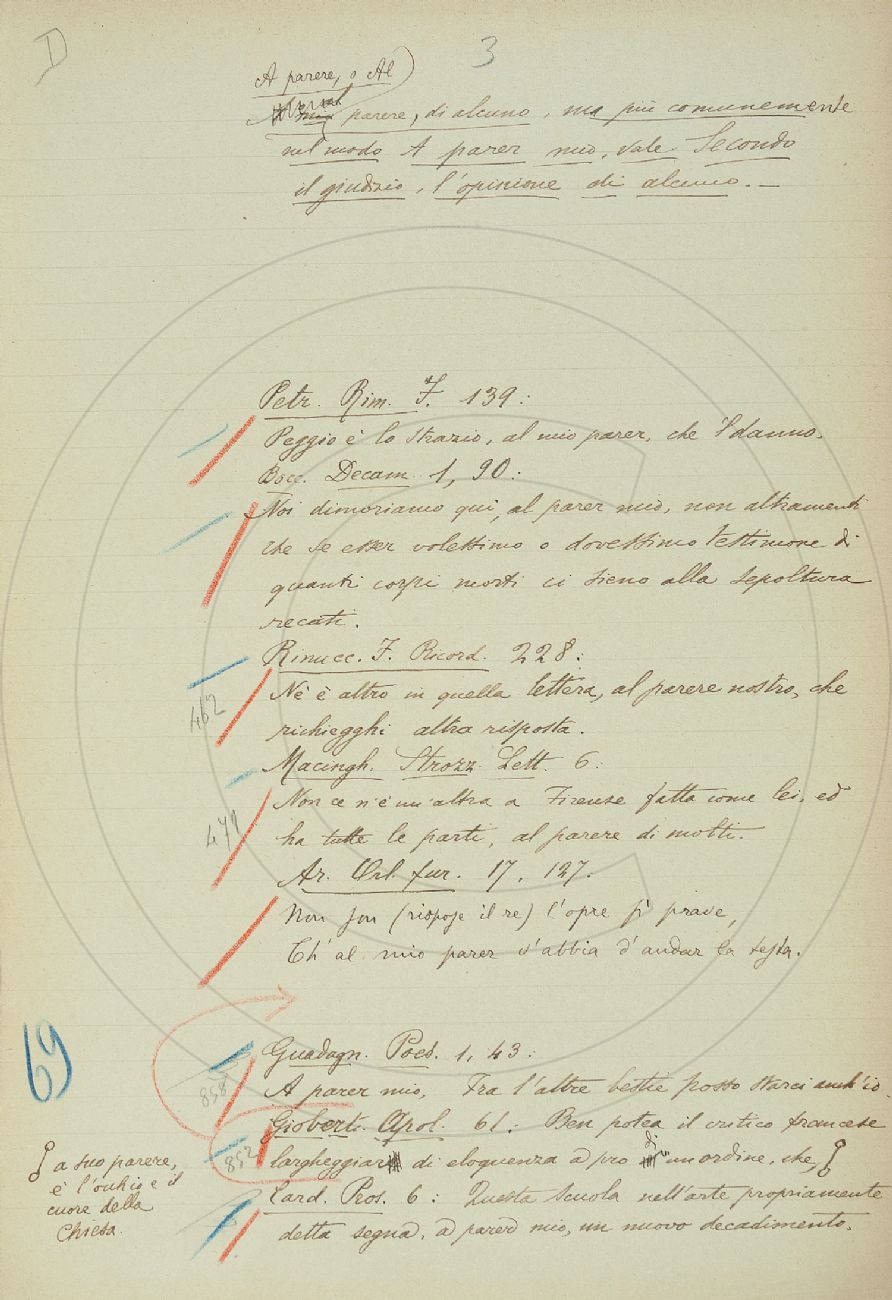 D
3
A parere, o Al
parere, di alcuno, ma più comunemente
nel modo A parer mio, vale Secondo
il giudizio, l'opinione di alcuno. —
Petr. Rim. F. 139:
Peggio è lo strazio, al mio parer, che 'l danno.
Bocc. Decam. 1, 90:
Noi dimoriamo qui, al parer mio, non altramenti
che se esser volessimo o dovessimo testimone di
quanti corpi morti ci sieno alla sepoltura
recati.
Rinucc. F. Ricord. 228:
462
Nè è altro in quella lettera, al parere nostro, che
richiegghi altra risposta.
Macingh. Strozz. Lett. 6:
Non ce n'è un'altra a Firenze fatta come lei, ed
471
ha tutte le parti, al parere di molti.
Ar. Orl. fur. 17, 127.
Non son (rispose il re) l'opre sì prave,
Ch' al mio parer s'abbia d'andar la testa.
69
Guadagn. Poes. 1, 43:
858
A parer mio, Fra l'altre bestie posso starci anch'io.
Gioberti. Apol. 61: Ben potea il critico francese
852
largheggiar di eloquenza a pro di un ordine, che,
a suo parere,
è l'occhio e il
cuore della
Chiesa.
Card. Pros. 6: Questa scuola nell'arte propriamente
detta segna, a parer mio, un nuovo decadimento.